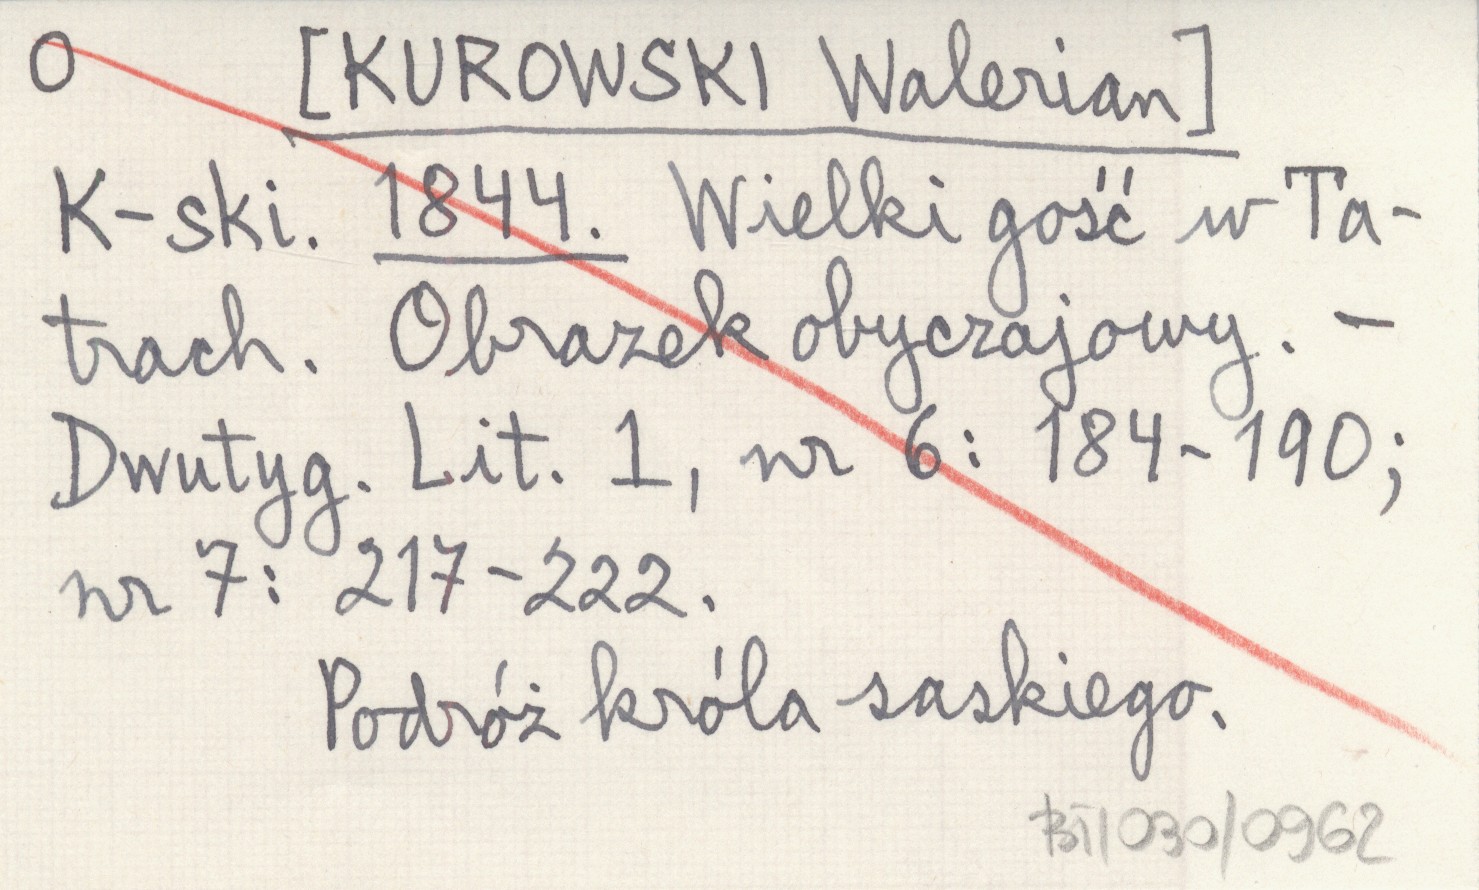 O [KUROWSKI Walerian]
K-ski. 1844. Wielki gość w Ta-
trach. Obrazek obyczajowy. -
Dwutyg. Lit. 1, nr 6: 184-190;
nr 7: 217-222.
Podróż króla saskiego.
BT/030/0962